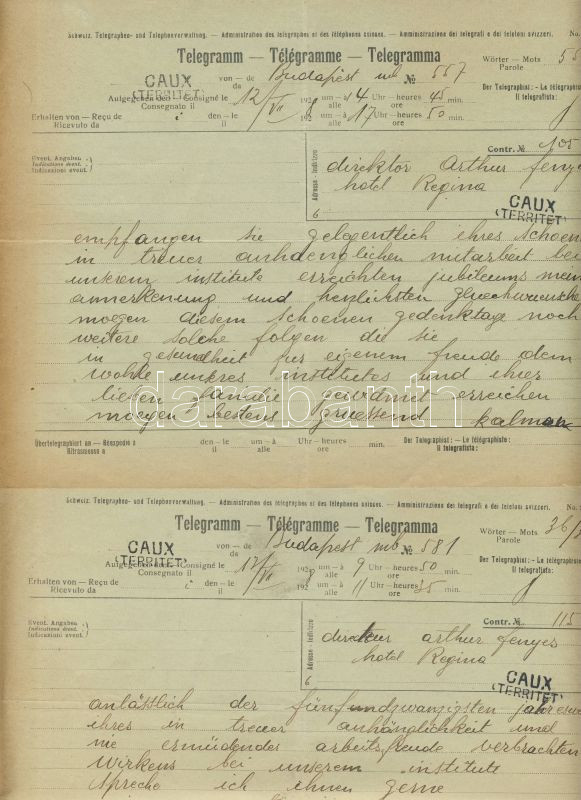 Schweiz. Telegraphen- und Telephonverwaltung. — Administration des télégraphes et des téléphones suisses. — Amministrazione dei telegrafi e dei telefoni svizzeri. No.
Telegramm — Télégramme — Telegramma
Wörter — Mots 55
Parole
von — de Budapest mb № 557
da
CAUX
(TERRITET)
Aufgegeben den — Consigné le 12/VII 1928 um — à 14 Uhr — heures 45 min.
Consegnato il alle ore
Der Telegraphist: — Le télégraphiste
Il telegrafista:
Erhalten von — Reçu de i den — le 192 um — à 17 Uhr — heures 50 min.
Ricevulo da il alle ore
Event. Angaben
Indications évent.
Indicazioni event.
Contr. № 105
Adresse - Indirizzo
direktor Arthur fenyes
hotel Regina
6
CAUX
(TERRITET)
empfangen sie gelegentlich ihres schoen
in treuer anhaenglichen mitarbeit bei
unserem institute erreichten jubileums mein
annerkenung und herzlichsten glueckwuensche
moegen diesem schoenen gedenktage noch
weitere solche folgen die sie
in gesundheit fur eigenem freude dem
wohle unsres institutes und ihrer
lieben familie gewidmit erreichen
moegen bestens gruessend kalman
darabanth
Übertelegraphiert an — Réexpédié à den — le um — à Uhr — heures min. Der Telegraphist: — Le télégraphiste:
Ritrasmesso a il alle ore Il telegrafista:
Schweiz. Telegraphen- und Telephonverwaltung. — Administration des télégraphes et des téléphones suisses. — Amministrazione dei telegrafi e dei telefoni svizzeri. No.
Telegramm — Télégramme — Telegramma
Wörter — Mots 36/
Parole
von — de Budapest mb № 581
da
CAUX
(TERRITET)
Aufgegeben den — Consigné le 17/VII 1928 um — à 9 Uhr — heures 50 min.
Consegnato il alle ore
Der Telegraphist: — Le télégraphiste
Il telegrafista:
Erhalten von — Reçu de i den — le 192 um — à 11 Uhr — heures 35 min.
Ricevulo da il alle ore
Event. Angaben
Indications évent.
Indicazioni event.
Contr. № 115
Adresse - Indirizzo
arthur fenyes
hotel Regina
6
CAUX
(TERRITET)
anlässlich der fünfundzwanzigsten
ihres in treuer anhänglichkeit und
nie ermüdender arbeitsfreude verbrachten
wirkens bei unserem institute
spreche ich ihnen gerne